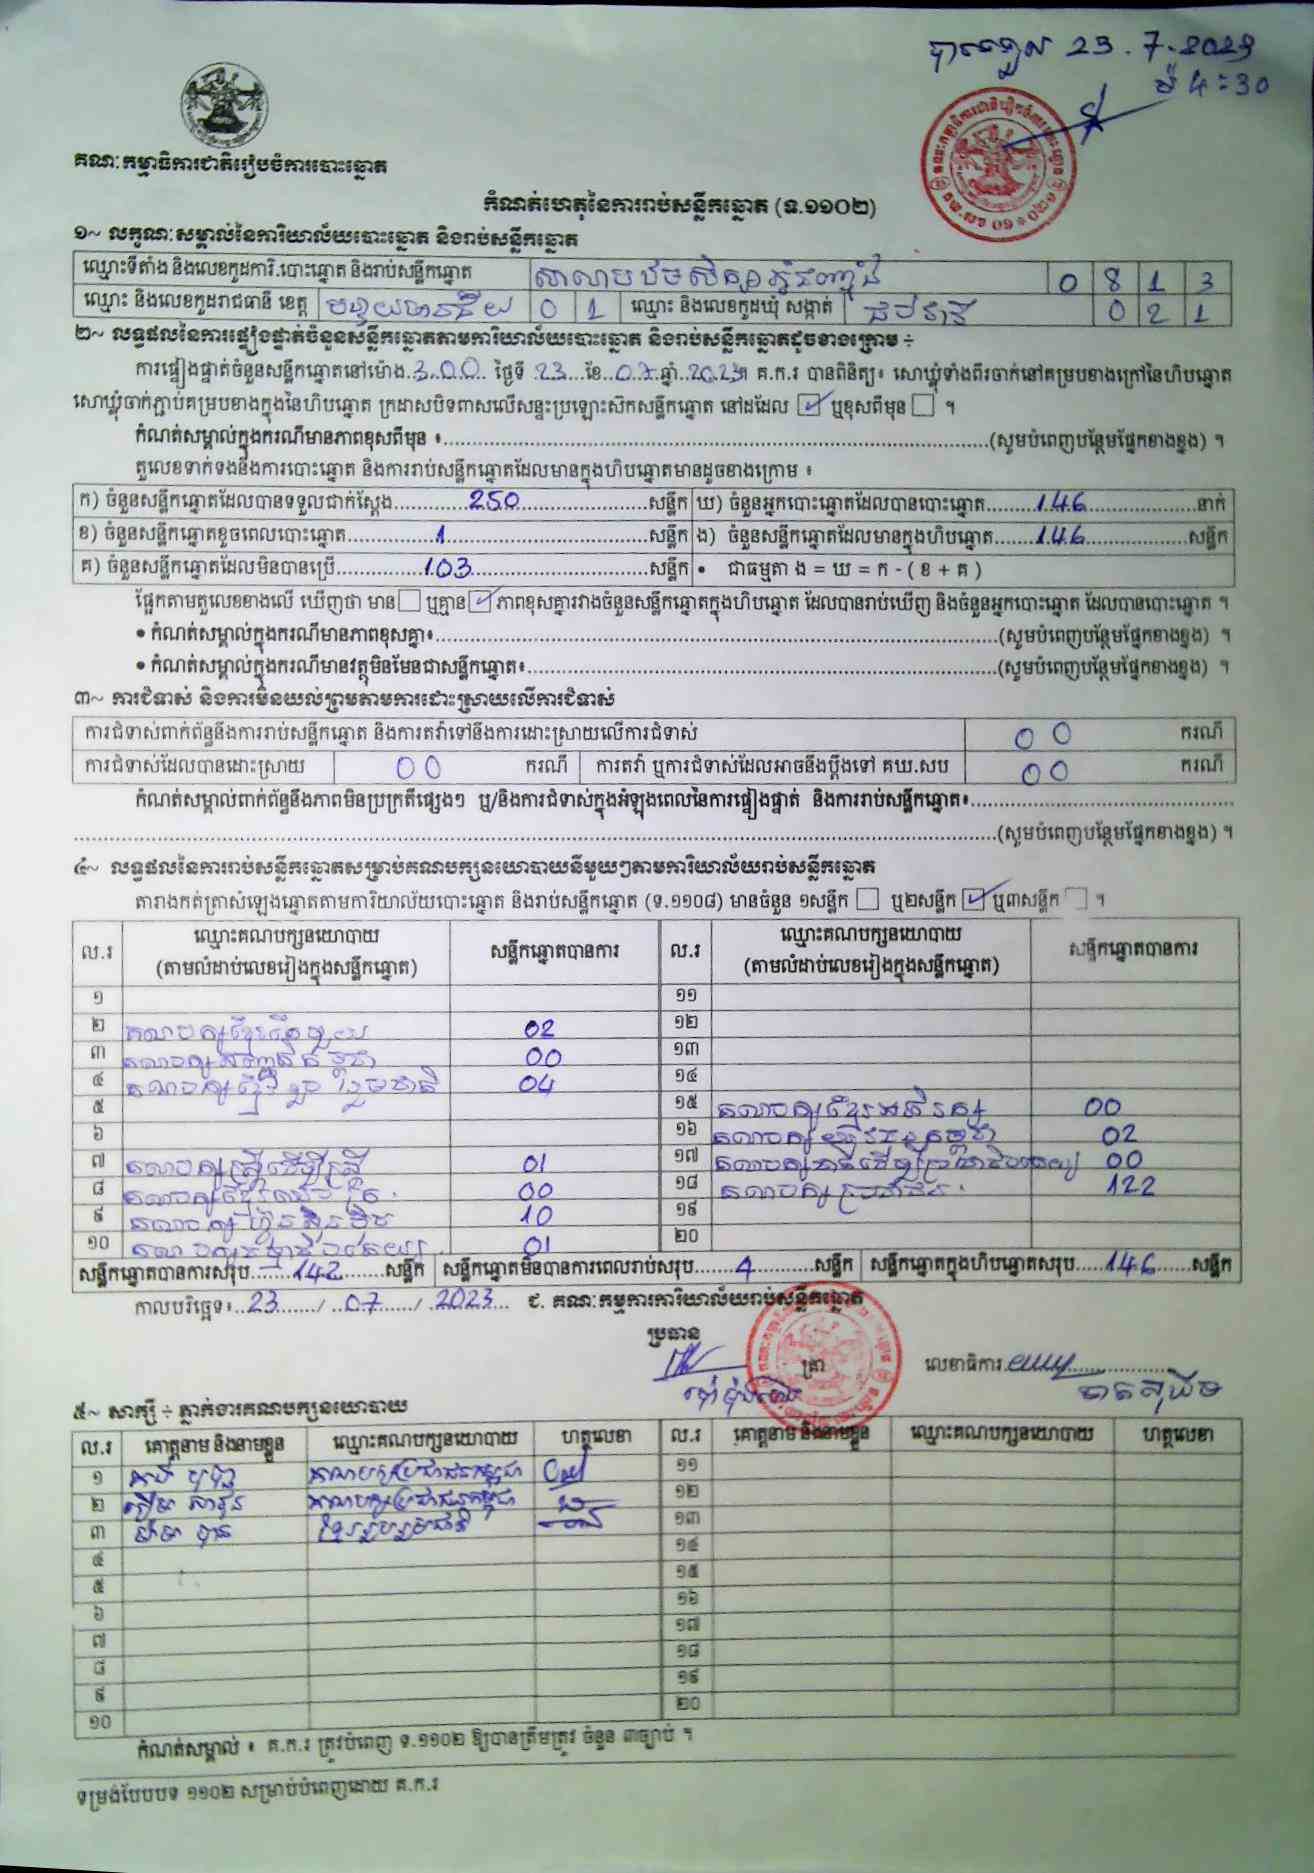 23.7.2023
ម៉ 4:30
គណៈកម្មាធិការជាតិរៀបចំការបោះឆ្នោត
កំណត់ហេតុនៃការរាប់សន្លឹកឆ្នោត (ទ.១១០២)
១~ លក្ខណៈសម្គាល់នៃការិយាល័យបោះឆ្នោត និងរាប់សន្លឹកឆ្នោត
ឈ្មោះទីតាំង និងលេខកូដការិ.បោះឆ្នោត និងរាប់សន្លឹកឆ្នោត 0 8 1 3
ឈ្មោះ និងលេខកូដរាជធានី ខេត្ត បន្ទាយមានជ័យ 0 1 ឈ្មោះ និងលេខកូដឃុំ សង្កាត់ 0 2 1
២~ លទ្ធផលនៃការផ្ទៀងផ្ទាត់ចំនួនសន្លឹកឆ្នោតតាមការិយាល័យបោះឆ្នោត និងរាប់សន្លឹកឆ្នោតដូចខាងក្រោម ÷
ការផ្ទៀងផ្ទាត់ចំនួនសន្លឹកឆ្នោតនៅម៉ោង 3:00 ថ្ងៃទី 23 ខែ 07 ឆ្នាំ 2023 គ.ក.រ បានពិនិត្យ៖ សោឃ្លុំទាំងពីរចាក់នៅគម្របខាងក្រៅនៃហិបឆ្នោត
សោឃ្លុំចាក់ភ្ជាប់គម្របខាងក្នុងនៃហិបឆ្នោត ក្រដាសបិទពាសលើសន្ទះប្រឡោះស៊កសន្លឹកឆ្នោត នៅដដែល ☑ ឬខុសពីមុន ☐ ។
កំណត់សម្គាល់ក្នុងករណីមានភាពខុសពីមុន ៖ (សូមបំពេញបន្ថែមផ្នែកខាងខ្នង) ។
តួលេខទាក់ទងនឹងការបោះឆ្នោត និងការរាប់សន្លឹកឆ្នោតដែលមានក្នុងហិបឆ្នោតមានដូចខាងក្រោម ៖
ក) ចំនួនសន្លឹកឆ្នោតដែលបានទទួលជាក់ស្តែង 250 សន្លឹក ឃ) ចំនួនអ្នកបោះឆ្នោតដែលបានបោះឆ្នោត 146 នាក់
ខ) ចំនួនសន្លឹកឆ្នោតខូចពេលបោះឆ្នោត 1 សន្លឹក ង) ចំនួនសន្លឹកឆ្នោតដែលមានក្នុងហិបឆ្នោត 146 សន្លឹក
គ) ចំនួនសន្លឹកឆ្នោតដែលមិនបានប្រើ 103 សន្លឹក • ជាធម្មតា ង = ឃ = ក - ( ខ + គ )
ផ្អែកតាមតួលេខខាងលើ ឃើញថា មាន ☐ ឬគ្មាន ☑ ភាពខុសគ្នារវាងចំនួនសន្លឹកឆ្នោតក្នុងហិបឆ្នោត ដែលបានរាប់ឃើញ និងចំនួនអ្នកបោះឆ្នោត ដែលបានបោះឆ្នោត ។
• កំណត់សម្គាល់ក្នុងករណីមានភាពខុសគ្នា៖ (សូមបំពេញបន្ថែមផ្នែកខាងខ្នង) ។
• កំណត់សម្គាល់ក្នុងករណីមានវត្ថុមិនមែនជាសន្លឹកឆ្នោត៖ (សូមបំពេញបន្ថែមផ្នែកខាងខ្នង) ។
៣~ ការជំទាស់ និងការមិនយល់ព្រមតាមការដោះស្រាយលើការជំទាស់
ការជំទាស់ពាក់ព័ន្ធនឹងការរាប់សន្លឹកឆ្នោត និងការតវ៉ាទៅនឹងការដោះស្រាយលើការជំទាស់ 00 ករណី
ការជំទាស់ដែលបានដោះស្រាយ 00 ករណី ការតវ៉ា ឬការជំទាស់ដែលអាចនឹងប្តឹងទៅ គឃ.សប 00 ករណី
កំណត់សម្គាល់ពាក់ព័ន្ធនឹងភាពមិនប្រក្រតីផ្សេងៗ ឬ/និងការជំទាស់ក្នុងអំឡុងពេលនៃការផ្ទៀងផ្ទាត់ និងការរាប់សន្លឹកឆ្នោត៖
(សូមបំពេញបន្ថែមផ្នែកខាងខ្នង) ។
៤~ លទ្ធផលនៃការរាប់សន្លឹកឆ្នោតសម្រាប់គណបក្សនយោបាយនីមួយៗតាមការិយាល័យរាប់សន្លឹកឆ្នោត
តារាងកត់ត្រាសំឡេងឆ្នោតតាមការិយាល័យបោះឆ្នោត និងរាប់សន្លឹកឆ្នោត (ទ.១១០៨) មានចំនួន ១សន្លឹក ☐ ឬ២សន្លឹក ☑ ឬ៣សន្លឹក ☐ ។
ល.រ ឈ្មោះគណបក្សនយោបាយ សន្លឹកឆ្នោតបានការ ល.រ ឈ្មោះគណបក្សនយោបាយ សន្លឹកឆ្នោតបានការ
(តាមលំដាប់លេខរៀងក្នុងសន្លឹកឆ្នោត) (តាមលំដាប់លេខរៀងក្នុងសន្លឹកឆ្នោត)
១ ១១
២ គណបក្ស 02 ១២
៣ គណបក្ស 00 ១៣
៤ គណបក្ស 04 ១៤
៥ ១៥ គណបក្សខ្មែរអភិរក្ស 00
៦ ១៦ គណបក្ស 02
៧ គណបក្សស្ត្រីដើម្បីស្ត្រី 01 ១៧ គណបក្ស 00
៨ គណបក្ស 00 ១៨ គណបក្សប្រជាជន 122
៩ គណបក្សហ្វ៊ុនស៊ិនប៉ិច 10 ១៩
១០ គណបក្ស 01 ២០
សន្លឹកឆ្នោតបានការសរុប 142 សន្លឹក សន្លឹកឆ្នោតមិនបានការពេលរាប់សរុប 4 សន្លឹក សន្លឹកឆ្នោតក្នុងហិបឆ្នោតសរុប 146 សន្លឹក
កាលបរិច្ឆេទ៖ 23 / 07 / 2023 ជ. គណៈកម្មការការិយាល័យរាប់សន្លឹកឆ្នោត
ប្រធាន
ត្រា លេខាធិការ
៥~ សាក្សី ÷ ភ្នាក់ងារគណបក្សនយោបាយ
ល.រ គោត្តនាម និងនាមខ្លួន ឈ្មោះគណបក្សនយោបាយ ហត្ថលេខា ល.រ គោត្តនាម និងនាមខ្លួន ឈ្មោះគណបក្សនយោបាយ ហត្ថលេខា
១ គណបក្សប្រជាជនកម្ពុជា ១១
២ គណបក្សប្រជាជនកម្ពុជា ១២
៣ ខ្មែររួបរួមជាតិ ១៣
៤ ១៤
៥ ១៥
៦ ១៦
៧ ១៧
៨ ១៨
៩ ១៩
១០ ២០
កំណត់សម្គាល់ ៖ គ.ក.រ ត្រូវបំពេញ ទ.១១០២ ឱ្យបានត្រឹមត្រូវ ចំនួន ៣ច្បាប់ ។
ទម្រង់បែបបទ ១១០២ សម្រាប់បំពេញដោយ គ.ក.រ